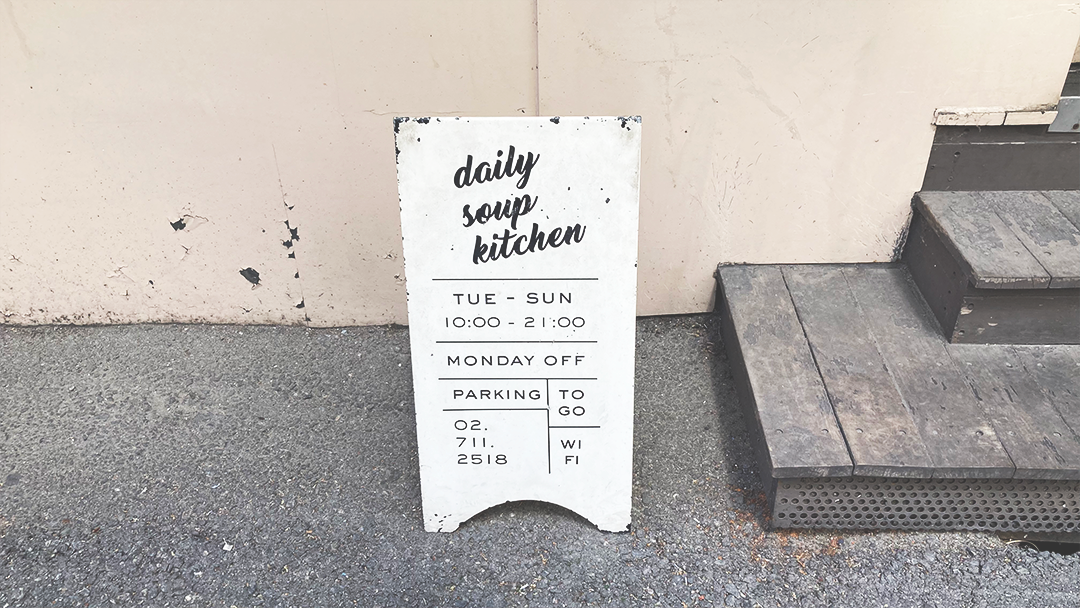 daily
soup
kitchen
TUE - SUN
10:00 - 21:00
MONDAY OFF
PARKING
TO
GO
02.
711.
2518
WI
FI